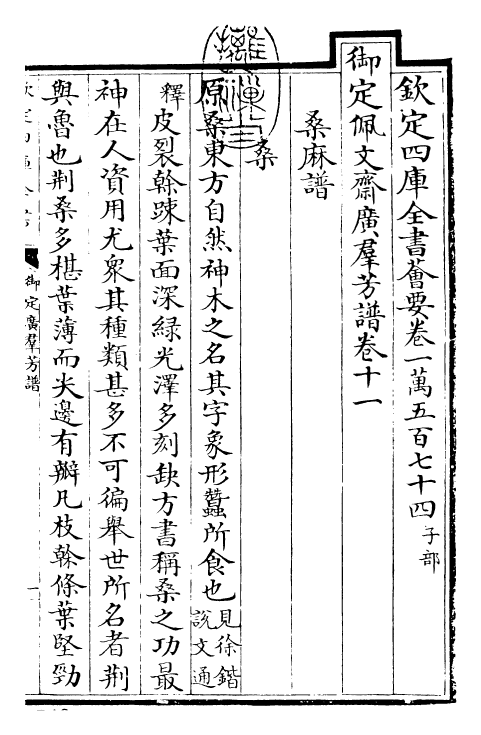 欽定四庫全書薈要卷一萬五百七十四子部
御定佩文齋廣羣芳譜卷十一
桑麻譜
桑
原桑東方自然神木之名其字象形蠶所食也見徐鍇說文通
釋皮裂榦踈葉面深緑光澤多刻缺方書稱桑之功最
神在人資用尤衆其種類甚多不可徧舉世所名者荆
與魯也荆桑多椹葉薄而尖邊有瓣凡枝榦條葉堅勁
御定廣羣芳譜
一